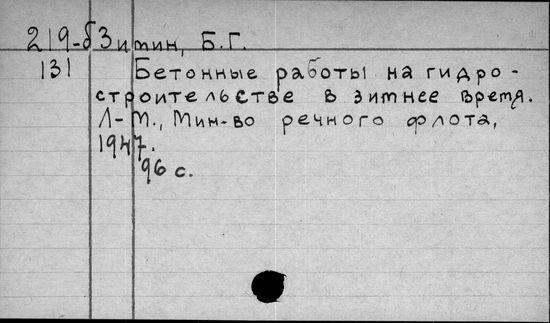 219-б Зитин, Б.Г.
131 Бетонные работы на гидро-
строительстве в зимнее время.
Л-М., Мин-во речного флота,
1947.
96 с.